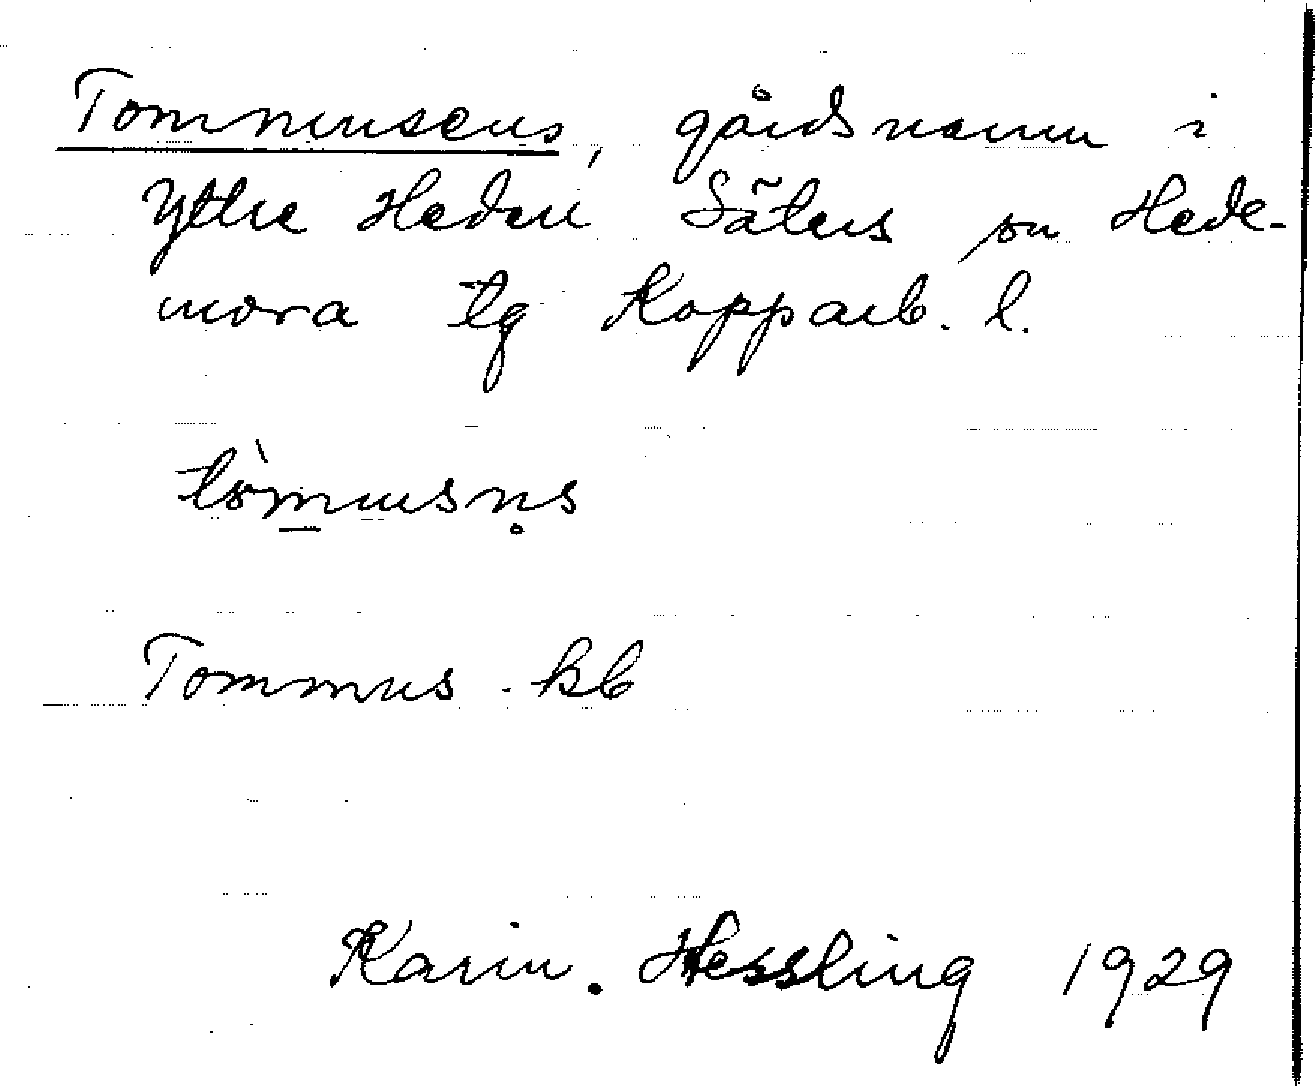 Tommusens, gårdsnamn i
Yttre Heden Säters sn Hede-
mora tg Kopparb. l.
tòm̲musn̥s
Tommus kb
Karin. Hessling 1929